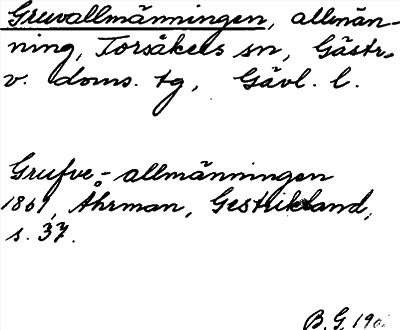 Gruvallmänningen, allmän-
ning, Torsåkers sn, Gästr.
v. doms. tg, Gävl. l.
Grufve-allmänningen
1861, Åhrman, Gestrikland,
s. 37.
B.G. 190